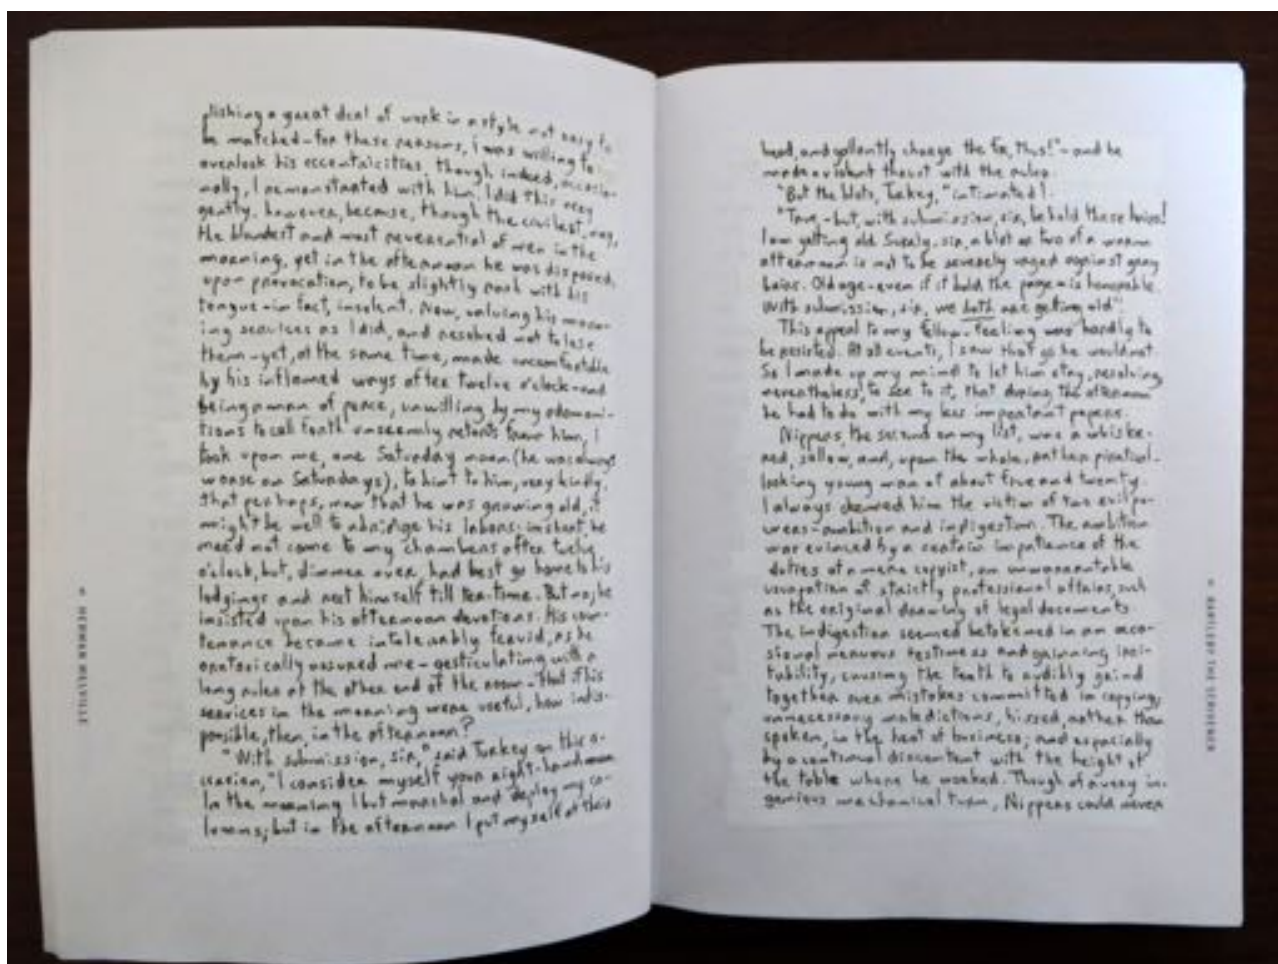 plishing a great deal of work in a style not easy to
be matched-for these reasons, I was willing to
overlook his eccentricities, though indeed, occasio-
nally, I remonstrated with him. I did this very
gently, however, because, though the civilest, nay,
the blandest and most reverential of men in the
morning, yet in the afternoon he was disposed,
upon provocation, to be slightly rash with his
tongue-in fact, insolent. Now, valuing his morn-
ing services as I did, and resolved not to lose
them-yet, at the same time, made uncomfortable
by his inflamed ways after twelve o'clock-and
being a man of peace, unwilling by my admoni-
tions to call forth unseemly retorts from him, I
took upon me, one Saturday noon (he was always
worse on Saturdays), to hint to him, very kindly,
that perhaps, now that he was growing old, it
might be well to abridge his labors; in short, he
need not come to my chambers after twelve
o'clock, but, dinner over, had best go home to his
lodgings and rest himself till tea-time. But no; he
insisted upon his afternoon devotions. His coun-
tenance became intolerably fervid, as he
oratorically assured me-gesticulating with a
long ruler at the other end of the room-that if his
services in the morning were useful, how indis-
pensible, then, in the afternoon?
"With submission, sir," said Turkey on this o-
ccasion, "I consider myself your right-hand man.
In the morning I but marshal and deploy my co-
lumns; but in the afternoon I put myself at their
HERMAN MELVILLE
head, and gallantly charge the foe, thus!"-and he
made a violent thrust with the ruler.
"But the blots, Turkey," intimated I.
"True,-but, with submission, sir, behold these hairs!
I am getting old. Surely, sir, a blot or two of a warm
afternoon is not to be severely urged against gray
hairs. Old age-even if it blot the page-is honorable.
With submission, sir, we both are getting old."
This appeal to my fellow-feeling was hardly to
be resisted. At all events, I saw that go he would not.
So I made up my mind to let him stay, resolving,
nevertheless, to see to it, that during the afternoon
he had to do with my less important papers.
Nippers, the second on my list, was a whiske-
red, sallow, and, upon the whole, rather piratical-
looking young man of about five and twenty.
I always deemed him the victim of two evil po-
wers-ambition and indigestion. The ambition
was evinced by a certain impatience of the
duties of a mere copyist, an unwarrantable
usurpation of strictly professional affairs, such
as the original drawing of legal documents.
The indigestion seemed betokened in an occa-
sional nervous testiness and grinning irri-
tability, causing the teeth to audibly grind
together over mistakes committed in copying;
unnecessary maledictions, hissed, rather than
spoken, in the heat of business; and especially
by a continual discontent with the height of
the table where he worked. Though of a very in-
genious mechanical turn, Nippers could never
BARTLEBY THE SCRIVENER